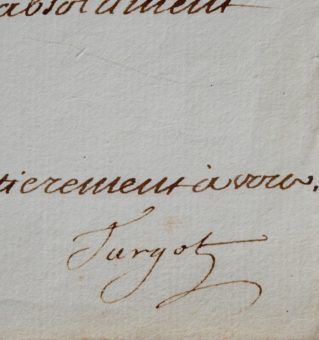 absolument
tierement à vous.
Turgot